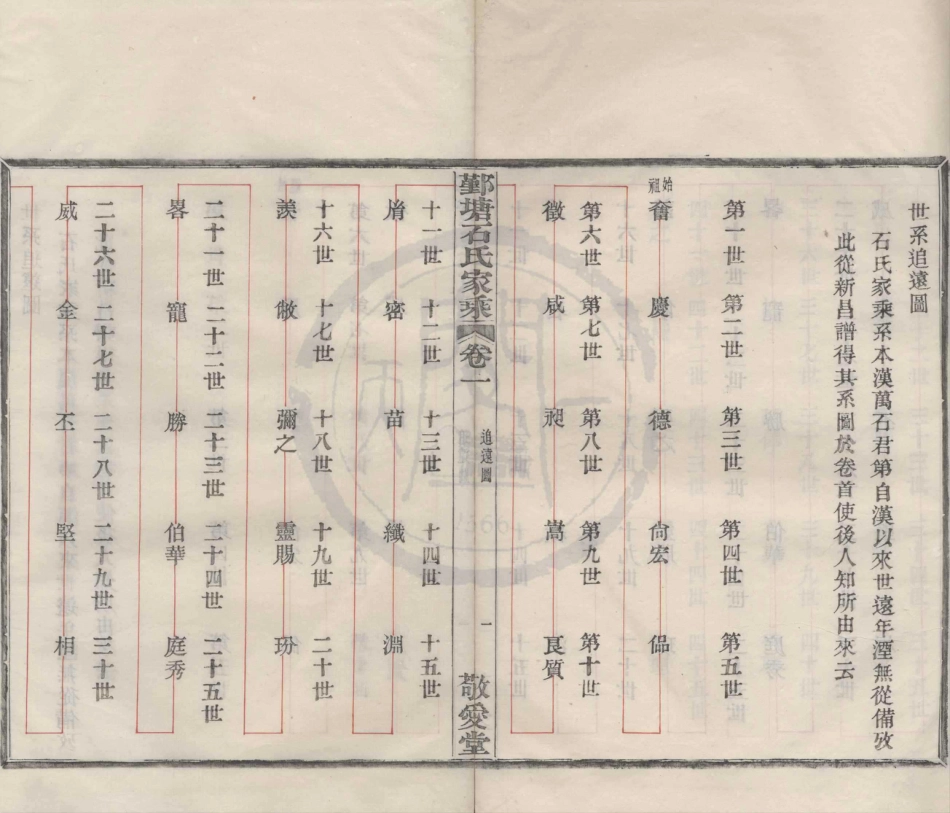 世系追遠圖
石氏家乘系本漢萬石君第自漢以來世遠年湮無從備攷
此從新昌譜得其系圖於卷首使後人知所由來云
第一世 第二世 第三世 第四世 第五世
始祖 奮 慶 德 尙宏 偘
第六世 第七世 第八世 第九世 第十世
徵 咸 昶 嵩 良質
鄞塘石氏家乘 卷一 追遠圖 一 敬愛堂
十一世 十二世 十三世 十四世 十五世
密 苗 纖 淵
十六世 十七世 十八世 十九世 二十世
羨 敞 彌之 靈賜 玢
二十一世 二十二世 二十三世 二十四世 二十五世
畧 寵 勝 伯華 庭秀
二十六世 二十七世 二十八世 二十九世 三十世
威 金 丕 堅 相